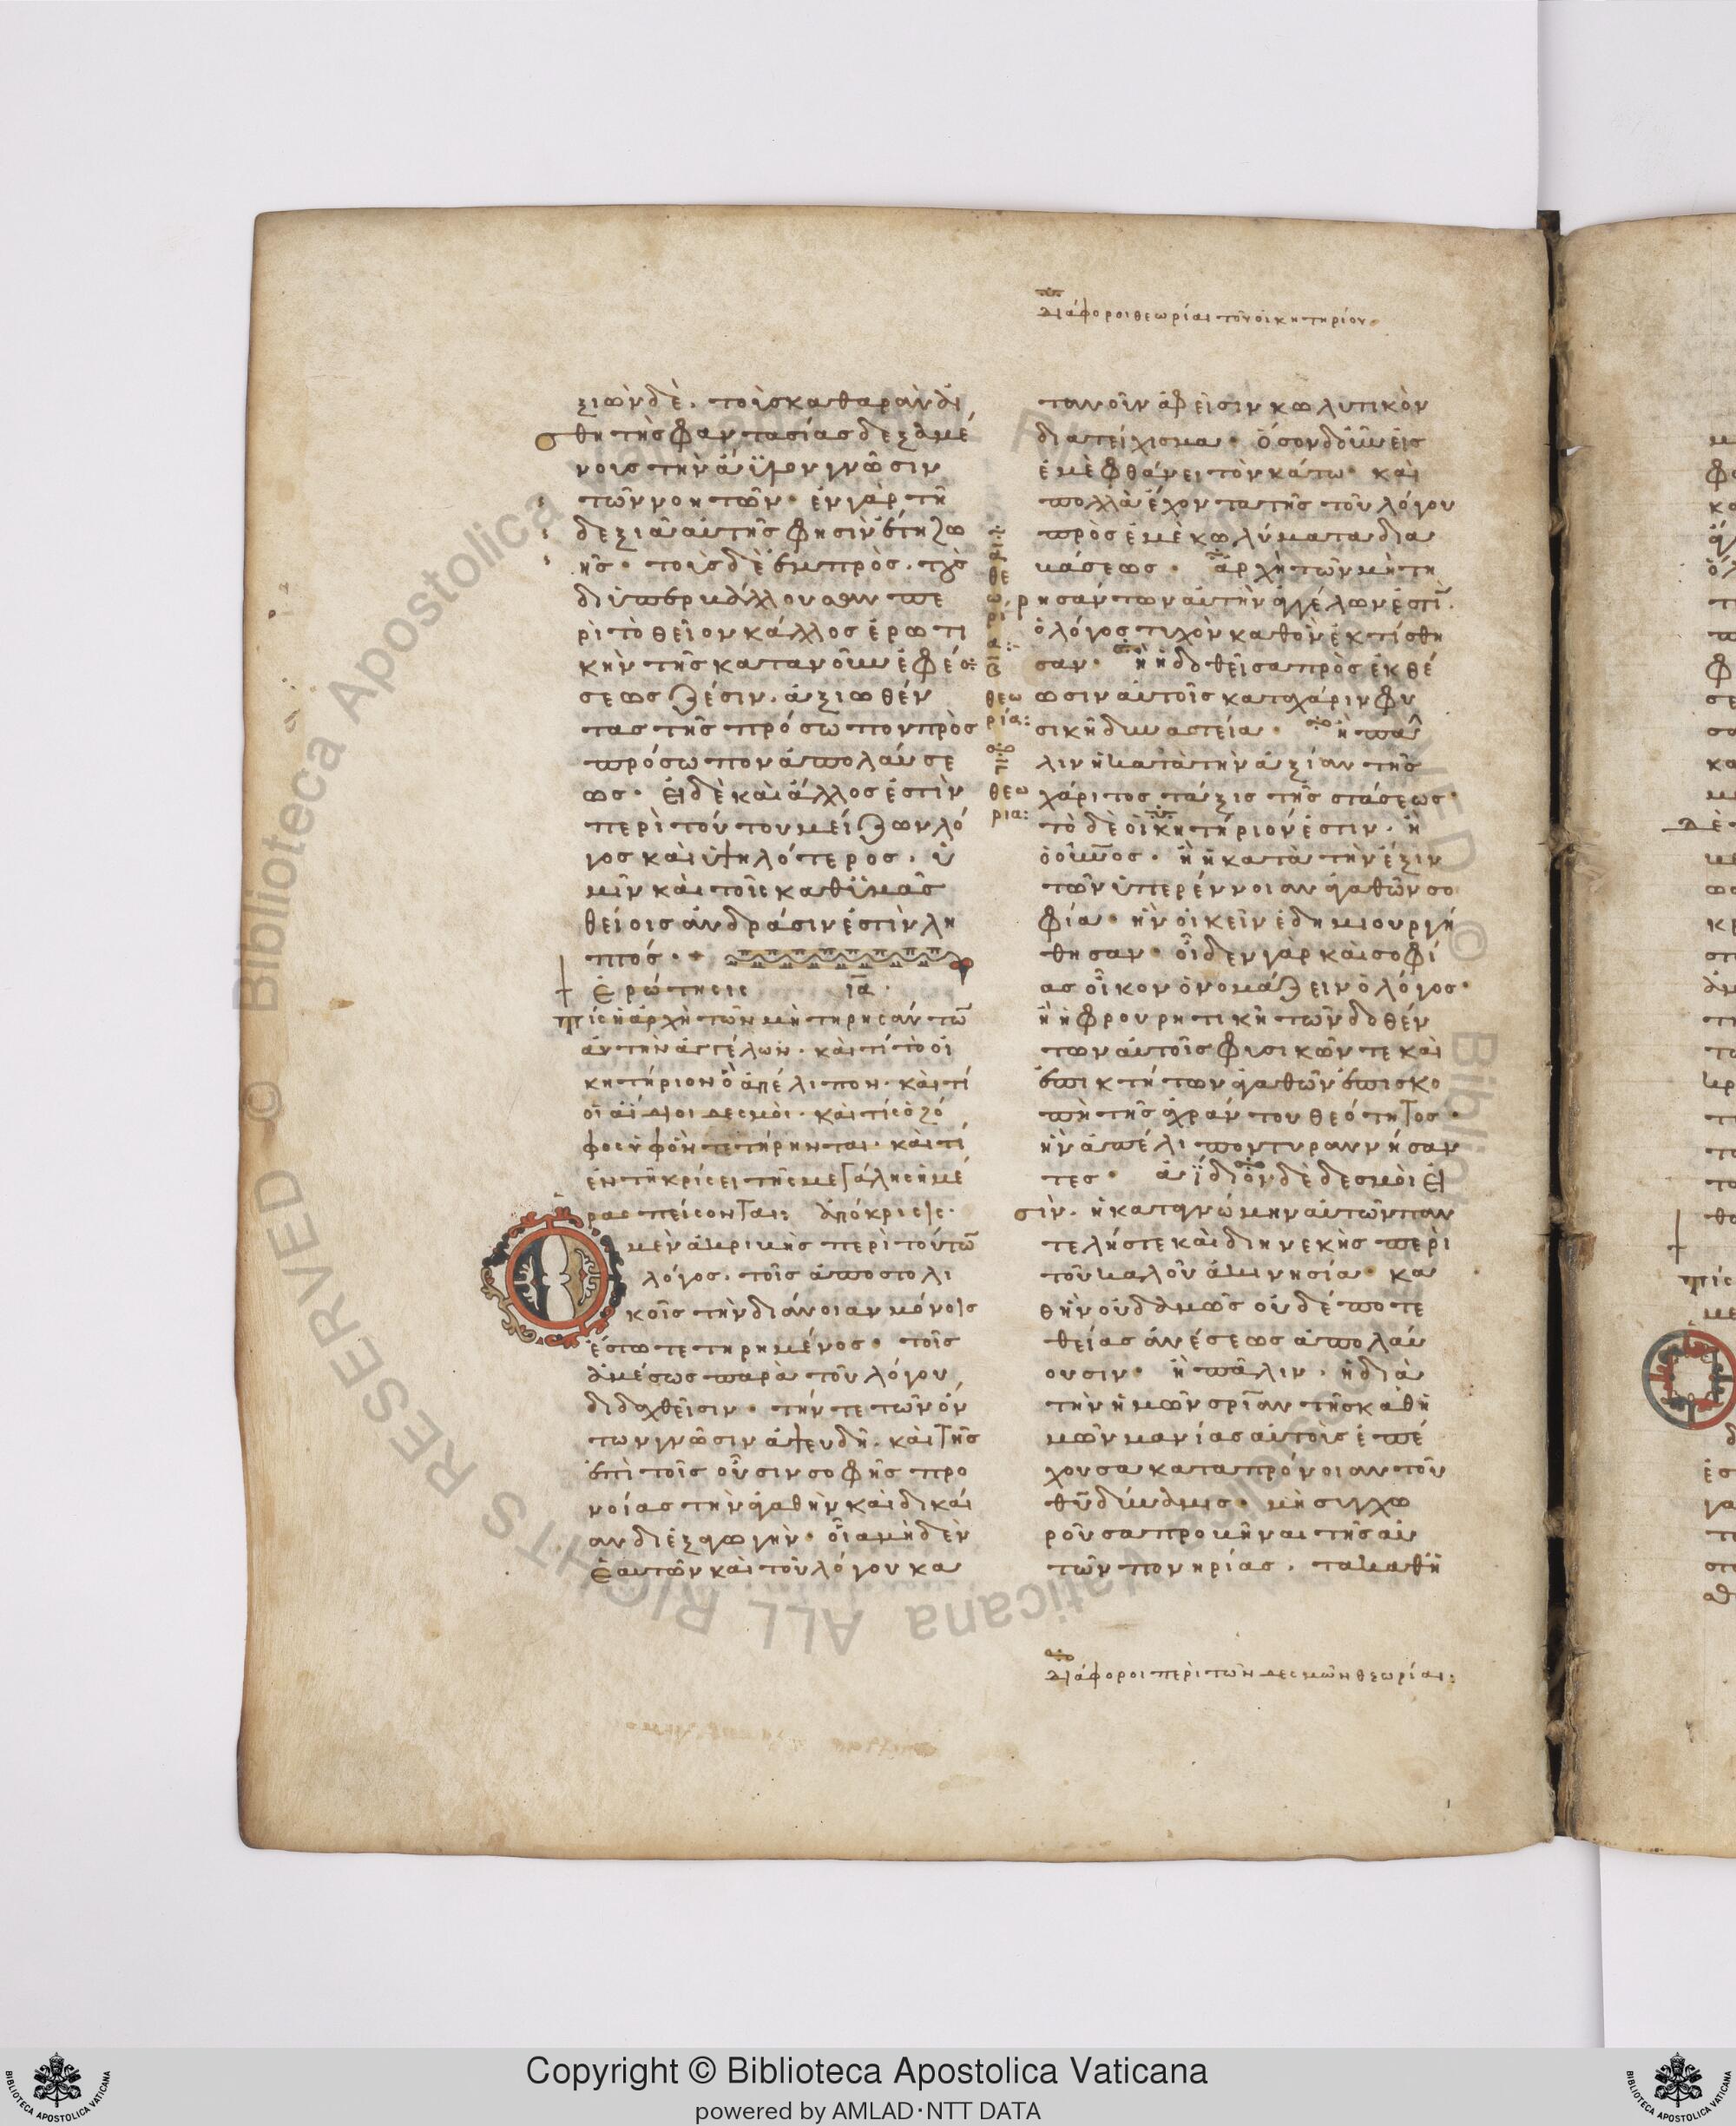 Διάφοροι θεωρίαι τοῦ οἰκητηρίου·
ξιῶν δὲ, τοῖς καθαρὰν ἀι
σθητῆς φαντασίας δεξαμέ
νοις τὴν ἀΐδιον γνῶσιν
τῶν νοητῶν· ἐν γὰρ τῆ
δεξιᾶ αὐτῆς φησὶν ἔτη ζω
ῆς· τοῖς δὲ ἔμπροσ, τοὺς
δι ὑπερβάλλουσαν πε
ρὶ τὸ θεῖον κάλλος ἐρωτι
κὴν τῆς κατανοῦν ἐφέ
σεως ζέσιν, ἀξιωθέν
τας τῆς πρόσωπον πρὸς
πρόσωπον ἀπολαύσε
ως· εἰ δὲ καὶ ἄλλος ἐστὶν
περὶ τούτου μείζων λό
γος καὶ ὑψηλότερος, ὑ
μῖν καὶ τοῖς καθ ὑμᾶς
θείοις ἀνδράσιν ἐστὶν λη
πτός·
Ἐρώτησις ια
Τίς ἡ ἀρχὴ τῶν μὴ τηρησάντω̄
αὐτὴν ἀγγέλων· καὶ τί τὸ οἰ
κητήριον ὃ ἀπέλιπον· καὶ τί
οἱ ἀίδιοι δεσμοὶ· καὶ τίς ὁ ζό
φος ὑφ ὃν τετήρηνται· καὶ τί
ἐν τῆ κρίσει τῆς μεγάλης ἡμέ
ρας πείσονται; ἀπόκρισις·
Ὁ μὲν ἀκριβὴς περὶ τούτω̄
λόγος, τοῖς ἀποστολι
κοῖς τὴν διάνοιαν μόνοις
ἔστω τετηρημένος· τοῖς
ἀμέσως παρὰ τοῦ λόγου
διδαχθεῖσιν· τήν τε τῶν ὄν
των γνῶσιν ἀψευδῆ, καὶ τῆς
ἐπὶ τοῖς οὖσιν σοφῆς προ
νοίας τὴν ἀγαθὴν καὶ δικαί
αν διέξαγωγὴν· οἷα μηδὲν
ἑαυτῶν καὶ τοῦ λόγου κα
α
θε
ω
ρί
α:
β
θεω
ρία:
γ
θεω
ρια:
τανοῦν ἀφεῖσιν κωλυτικὸν
διατείχισμα· ὅσον δ οὖν εἰς
ἐμὲ φθάνει τὸν κάτω· καὶ
πολλὰ ἔχοντα τῆς τοῦ λόγου
πρὸς ἐμὲ κωλύματα δια
βάσεως· ἀρχὴ τῶν μὴ τη
ρησάντων αὐτὴν ἀγγέλων ἐστι̅,
ὁ λόγος τυχὸν καθ ὃν ἐκτίσθη
σαν· ἢ ἡ δοθεῖσα πρὸς ἐκθέ
ωσιν αὐτοῖς κατα χάριν φυ
σικὴ δυναστεία· ἢ πά
λιν ἡ κατὰ τὴν ἀξίαν τῆς
χάριτος τάξις τῆς στάσεως·
τὸ δὲ οἰκητήριον ἐστιν, ἢ
ὁ οὐν̅ος· ἢ ἡ κατὰ τὴν ἕξιν
τῶν ὑπερέννοιαν ἀγαθῶν σο
φία· ἣν οἰκεῖν ἐδημιουργή
θησαν· οἶδεν γὰρ καὶ σοφί
ας οἶκον ὀνομάζειν ὁ λόγος·
ἢ ἡ φρουρητικὴ τῶν δοθέν
των αὐτοῖς φυσικῶν τε καὶ
ἐπικτήτων ἀγαθῶν ἐπισκο
πὴ τῆς ἀχράντου θεότητος·
ἣν ἀπέλιπον τυραννήσαν
τες· ἀΐδιον δὲ δεσμοὶ εἰ
σὶν, ἡ κατα γνώμην αὐτῶν παν
τελής τε καὶ διηνεκὴς περὶ
τοῦ καλοῦ ἀκινησία· κα
θ ἣν οὐδαμῶς οὐδέποτε
θείας ἀνέσεως ἀπολαύ
ουσιν· ἢ πάλιν, ἡ διὰ
τὴν ἡμῶν σρι̅αν τῆς καθ ἡ
μῶν μανίας αὐτοὺς ἐπέ
χουσα κατα πρόνοιαν τοῦ
θυ̅ δύναμις· μὴ συγχω
ροῦσα προβῆναι τῆς αὐ
τῶν πονηρίας, τα καθ ἡ
Διάφοροι περὶ τῶν δεσμῶν θεωρίαι:
Copyright © Biblioteca Apostolica Vaticana
powered by AMLAD·NTT DATA